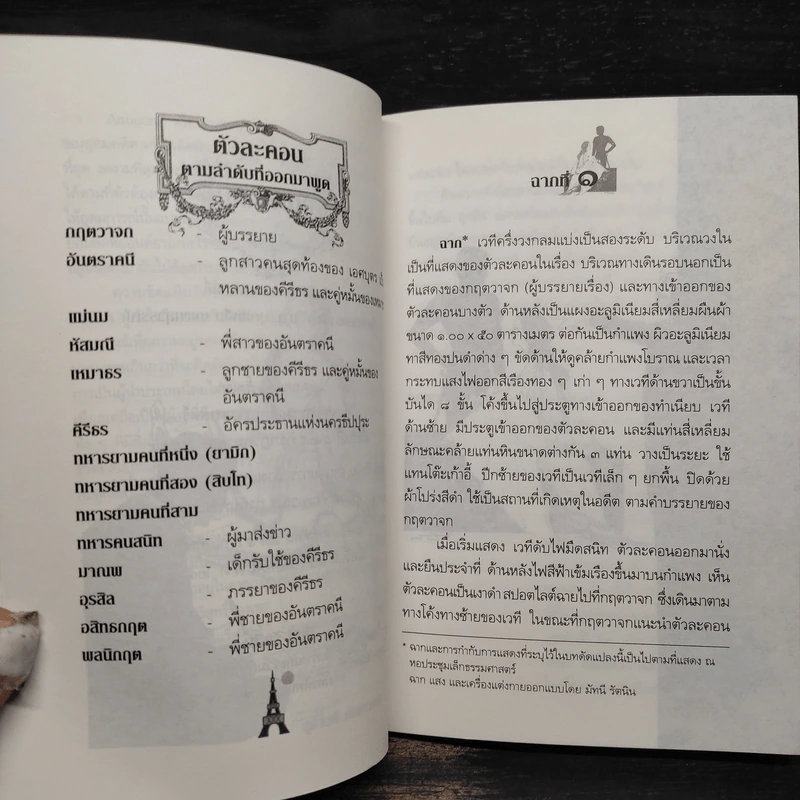 ตัวละคอน
ตามลำดับที่ออกมาพูด
กฤตวาจก - ผู้บรรยาย
อันตราคนี - ลูกสาวคนสุดท้องของ เอศบุตร
หลานของคีรีธร และคู่หมั้นของ
แม่นม
หัสมณี - พี่สาวของอันตราคนี
เหมาธร - ลูกชายของคีรีธร และคู่หมั้นของ
อันตราคนี
คีรีธร - อัครประธานแห่งนครธีปปุระ
ทหารยามคนที่หนึ่ง (ยามิก)
ทหารยามคนที่สอง (สิบโท)
ทหารยามคนที่สาม
ทหารคนสนิท - ผู้มาส่งข่าว
มาณพ - เด็กรับใช้ของคีรีธร
อุรสิล - ภรรยาของคีรีธร
อสิทธกฤต - พี่ชายของอันตราคนี
พลนิกฤต - พี่ชายของอันตราคนี
ฉากที่ ๑
ฉาก* เวทีครึ่งวงกลมแบ่งเป็นสองระดับ บริเวณวงใน
เป็นที่แสดงของตัวละคอนในเรื่อง บริเวณทางเดินรอบนอกเป็น
ที่แสดงของกฤตวาจก (ผู้บรรยายเรื่อง) และทางเข้าออกของ
ตัวละคอนบางตัว ด้านหลังเป็นแผงอะลูมิเนียมสี่เหลี่ยมผืนผ้า
ขนาด ๑.๐๐ x ๕๐ ตารางเมตร ต่อกันเป็นกำแพง ผิวอะลูมิเนียม
ทาสีทองปนดำต่าง ๆ ขัดด้านให้ดูคล้ายกำแพงโบราณ และเวลา
กระทบแสงไฟออกสีเรืองทอง ๆ เก่า ๆ ทางเวทีด้านขวาเป็นขั้น
บันได ๘ ขั้น โค้งขึ้นไปสู่ประตูทางเข้าออกของทำเนียบ เวที
ด้านซ้าย มีประตูเข้าออกของตัวละคอน และมีแท่นสี่เหลี่ยม
ลักษณะคล้ายแท่นหินขนาดต่างกัน ๓ แท่น วางเป็นระยะ ใช้
แทนโต๊ะเก้าอี้ ปีกซ้ายของเวทีเป็นเวทีเล็ก ๆ ยกพื้น ปิดด้วย
ผ้าโปร่งสีดำ ใช้เป็นสถานที่เกิดเหตุในอดีต ตามคำบรรยายของ
กฤตวาจก
เมื่อเริ่มแสดง เวทีดับไฟมืดสนิท ตัวละคอนออกมานั่ง
และยืนประจำที่ ด้านหลังไฟสีฟ้าเข้มเรืองขึ้นมาบนกำแพง เห็น
ตัวละคอนเป็นเงาดำ สปอตไลต์ฉายไปที่กฤตวาจก ซึ่งเดินมาตาม
ทางโค้งทางซ้ายของเวที ในขณะที่กฤตวาจกแนะนำตัวละคอน
* ฉากและการกำกับการแสดงที่ระบุไว้ในบทดัดแปลงนี้เป็นไปตามที่แสดง ณ
หอประชุมเล็กธรรมศาสตร์
ฉาก แสง และเครื่องแต่งกายออกแบบโดย มัทนี รัตนิน